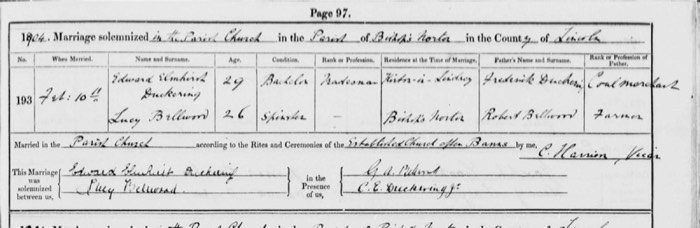 Page 97.
1904. Marriage solemnized in the Parish Church in the Parish of Bishop's Norton in the County of Lincoln
No. When Married. Name and Surname. Age. Condition. Rank or Profession. Residence at the Time of Marriage. Father's Name and Surname. Rank or Profession of Father.
193 Feb: 10th Edward Elmhirst Duckering 29 Bachelor Tradesman Kirton-in-Lindsey Frederick Duckering Coal merchant
Lucy Bellwood 26 Spinster — Bishop's Norton Robert Bellwood Farmer
Married in the Parish Church according to the Rites and Ceremonies of the Established Church after Banns by me, C. Harrison, Vicar
This Marriage was solemnized between us, Edward Elmhirst Duckering
Lucy Bellwood
in the Presence of us, G. A.
C. E. Duckering Jr.